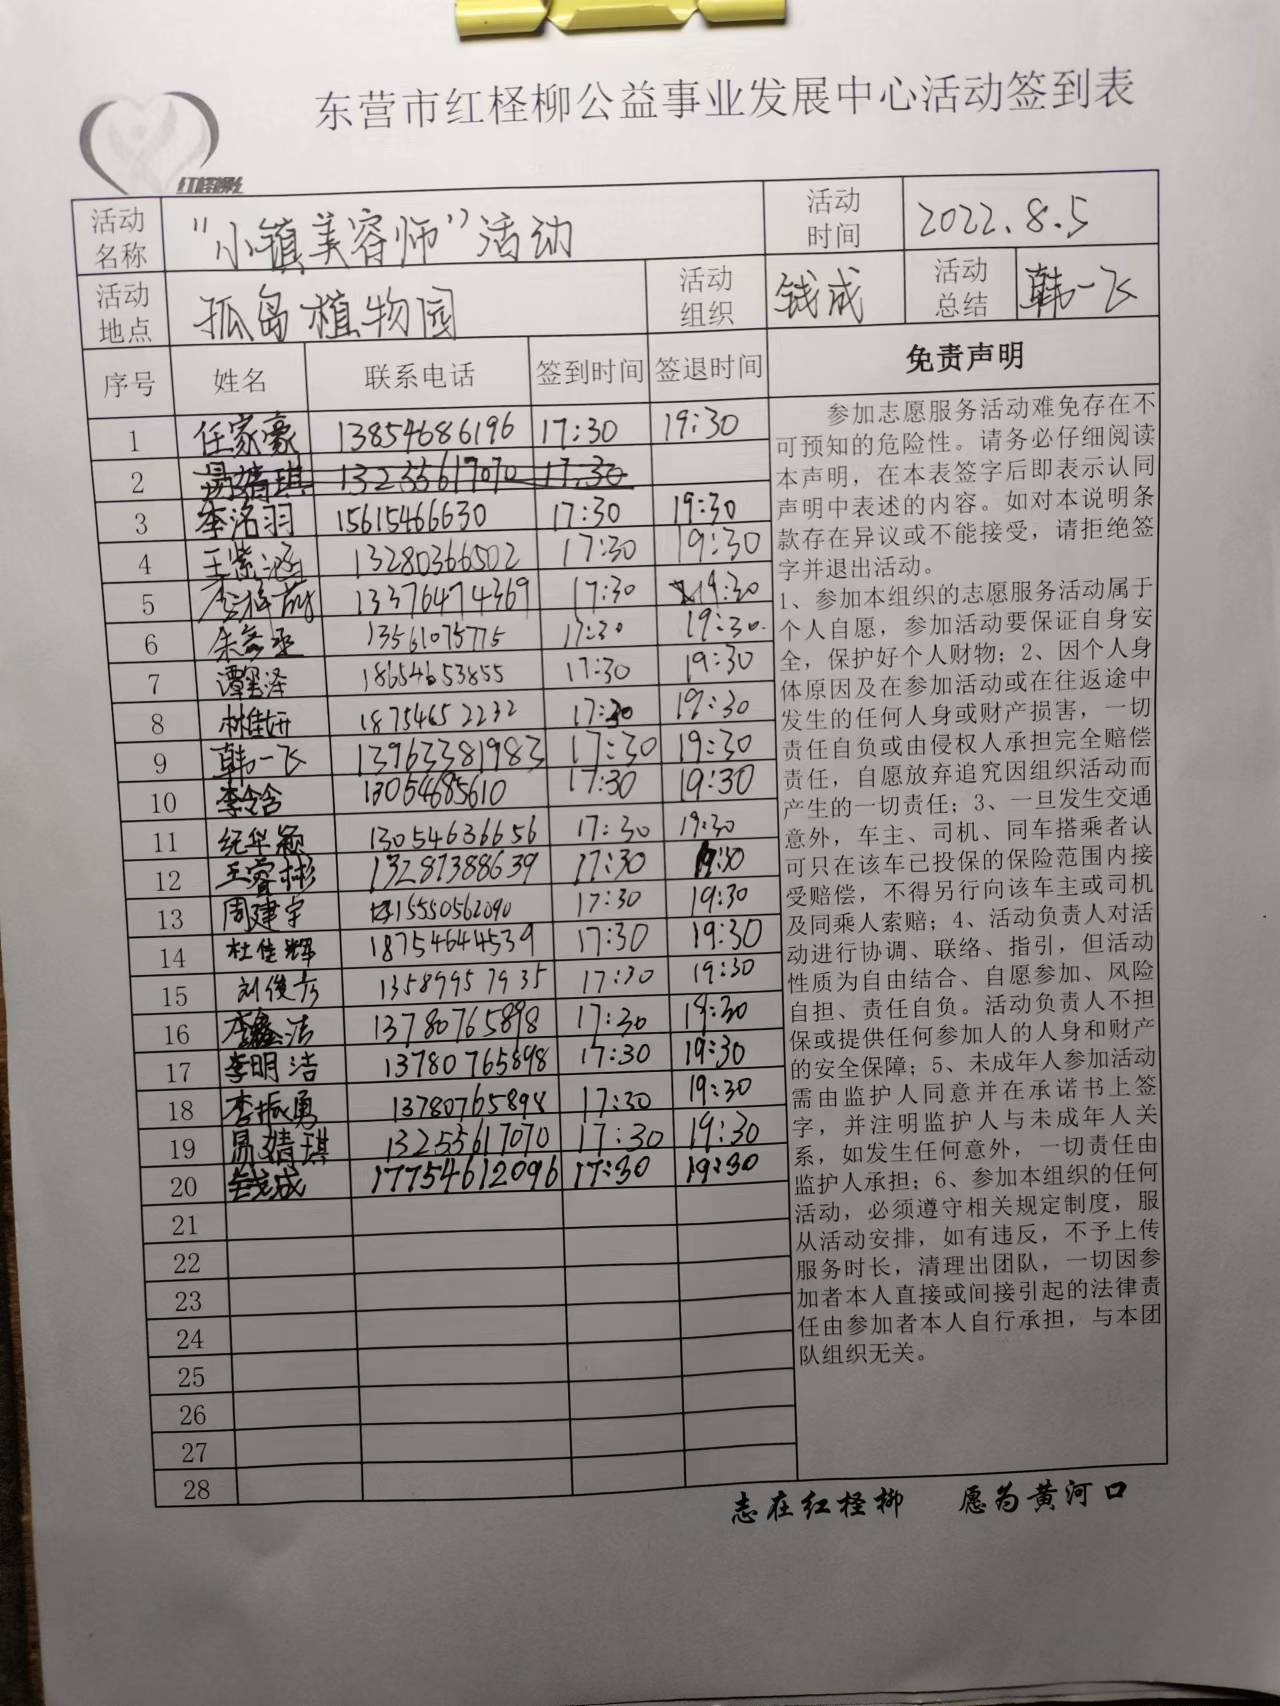 东营市红柽柳公益事业发展中心活动签到表
红柽柳
活动名称 “小镇美容师”活动 活动时间 2022.8.5
活动地点 孤岛植物园 活动组织 钱成 活动总结 韩一飞
序号 姓名 联系电话 签到时间 签退时间 免责声明
1 任家豪 13854686196 17:30 19:30
2 易婧琪 13255617070 17:30
3 李洺羽 15615466630 17:30 19:30
4 王紫涵 13280366502 17:30 19:30
5 13376474369 17:30 19:30
6 13561075775 17:30 19:30.
7 18654653855 17:30 19:30
8 杜佳妍 18754652232 17:30 19:30
9 韩一飞 13963381983 17:30 19:30
10 李令含 13054685610 17:30 19:30
11 纪华颖 13054636656 17:30 19:30
12 王睿彬 13287388639 17:30 19:30
13 周建宇 15550562090 17:30 19:30
14 杜佳辉 18754644539 17:30 19:30
15 刘俊彦 13589957935 17:30 19:30
16 13780765898 17:30 19:30
17 李明洁 13780765898 17:30 19:30
18 李振勇 13780765898 17:30 19:30
19 易婧琪 13255617070 17:30 19:30
20 钱成 17754612096 17:30 19:30
21
22
23
24
25
26
27
28
参加志愿服务活动难免存在不
可预知的危险性。请务必仔细阅读
本声明，在本表签字后即表示认同
声明中表述的内容。如对本说明条
款存在异议或不能接受，请拒绝签
字并退出活动。
1、参加本组织的志愿服务活动属于
个人自愿，参加活动要保证自身安
全，保护好个人财物；2、因个人身
体原因及在参加活动或在往返途中
发生的任何人身或财产损害，一切
责任自负或由侵权人承担完全赔偿
责任，自愿放弃追究因组织活动而
产生的一切责任；3、一旦发生交通
意外，车主、司机、同车搭乘者认
可只在该车已投保的保险范围内接
受赔偿，不得另行向该车主或司机
及同乘人索赔；4、活动负责人对活
动进行协调、联络、指引，但活动
性质为自由结合、自愿参加、风险
自担、责任自负。活动负责人不担
保或提供任何参加人的人身和财产
的安全保障；5、未成年人参加活动
需由监护人同意并在承诺书上签
字，并注明监护人与未成年人关
系，如发生任何意外，一切责任由
监护人承担；6、参加本组织的任何
活动，必须遵守相关规定制度，服
从活动安排，如有违反，不予上传
服务时长，清理出团队，一切因参
加者本人直接或间接引起的法律责
任由参加者本人自行承担，与本团
队组织无关。
志在红柽柳 愿为黄河口